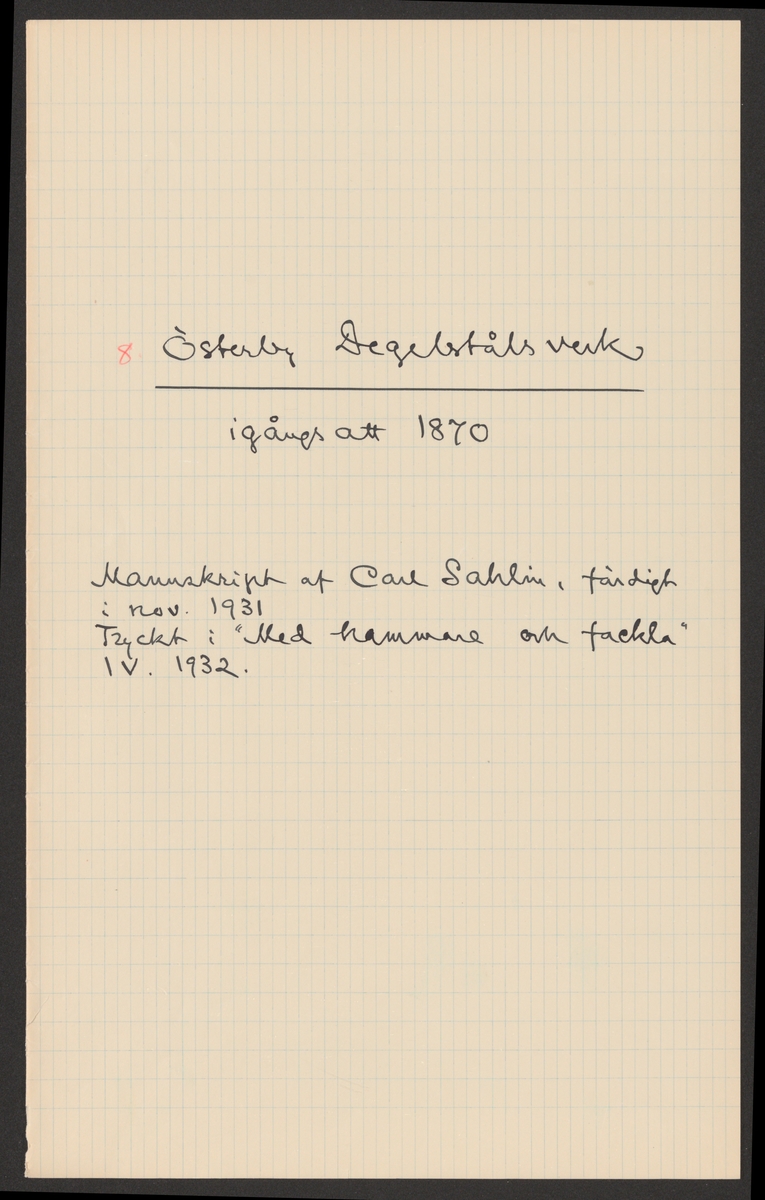 8 Österby Degelstålsverk
igångsatt 1870
Manuskript af Carl Sahlin, färdigt
i nov. 1931
Tryckt i "Med hammare och fackla"
IV. 1932.